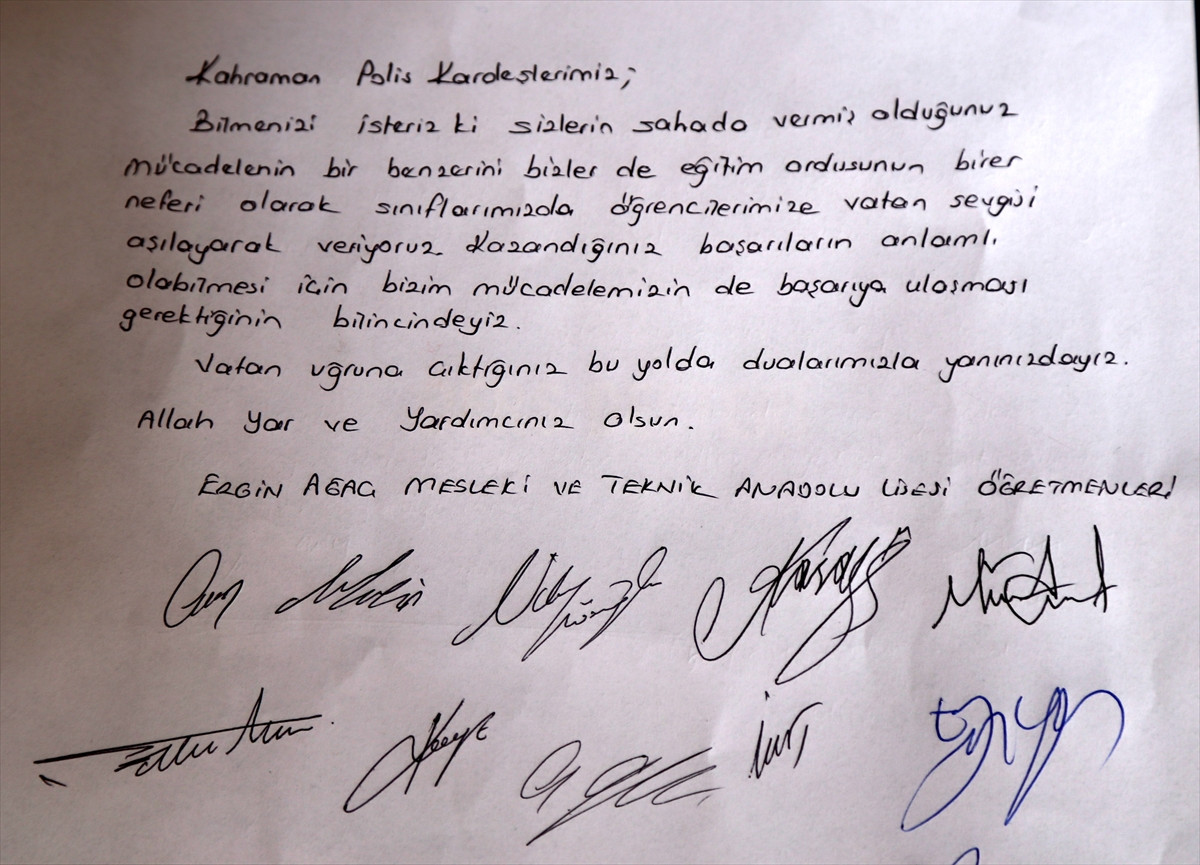 Kahraman Polis Kardeşlerimiz;
Bilmenizi isteriz ki sizlerin sahada vermiş olduğunuz
mücadelenin bir benzerini bizler de eğitim ordusunun birer
neferi olarak sınıflarımızda öğrencilerimize vatan sevgisi
aşılayarak veriyoruz. Kazandığınız başarıların anlamlı
olabilmesi için bizim mücadelemizin de başarıya ulaşması
gerektiğinin bilincindeyiz.
Vatan uğruna çıktığınız bu yolda dualarımızla yanınızdayız.
Allah Yar ve Yardımcınız Olsun.
EZGİN AĞAÇ MESLEKİ VE TEKNİK ANADOLU LİSESİ ÖĞRETMENLERİ